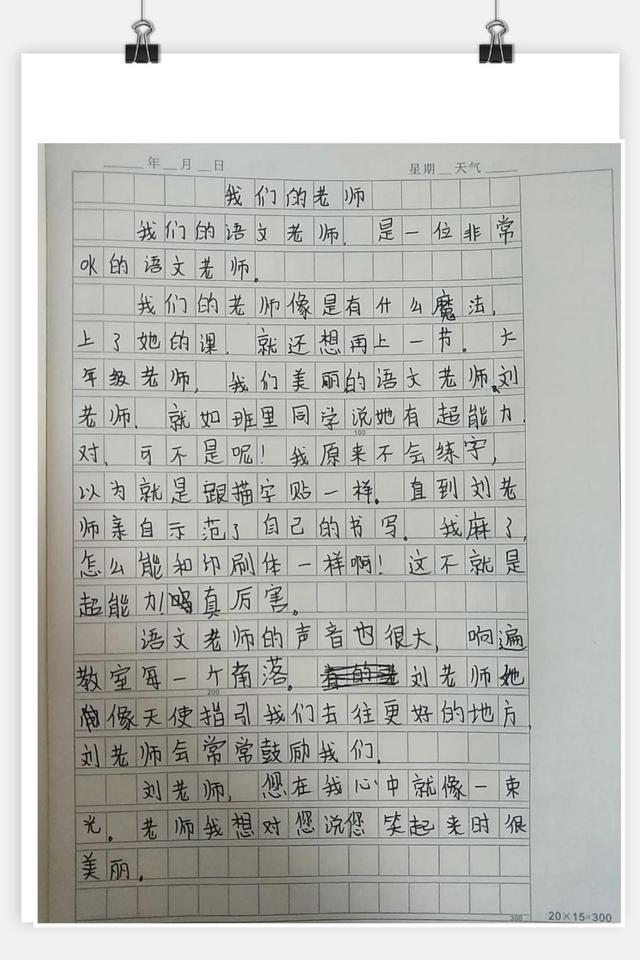 年 月 日 星期 天气
我们的老师
我们的语文老师，是一位非常
吹的语文老师。
我们的老师像是有什么魔法，
上了她的课，就还想再上一节。大
年级老师，我们美丽的语文老师刘
老师，就如班里同学说她有超能力，
100
对，可不是呢！我原来不会练字，
以为就是跟描字贴一样。直到刘老
师亲自示范了自己的书写。我麻了，
怎么能和印刷体一样啊！这不就是
超能力！真厉害。
语文老师的声音也很大，响遍
教室每一个角落。刘老师她
200
像天使指引我们去往更好的地方，
刘老师会常常鼓励我们。
刘老师，您在我心中就像一束
光。老师我想对您说您笑起来时很
美丽。
300
20×15=300